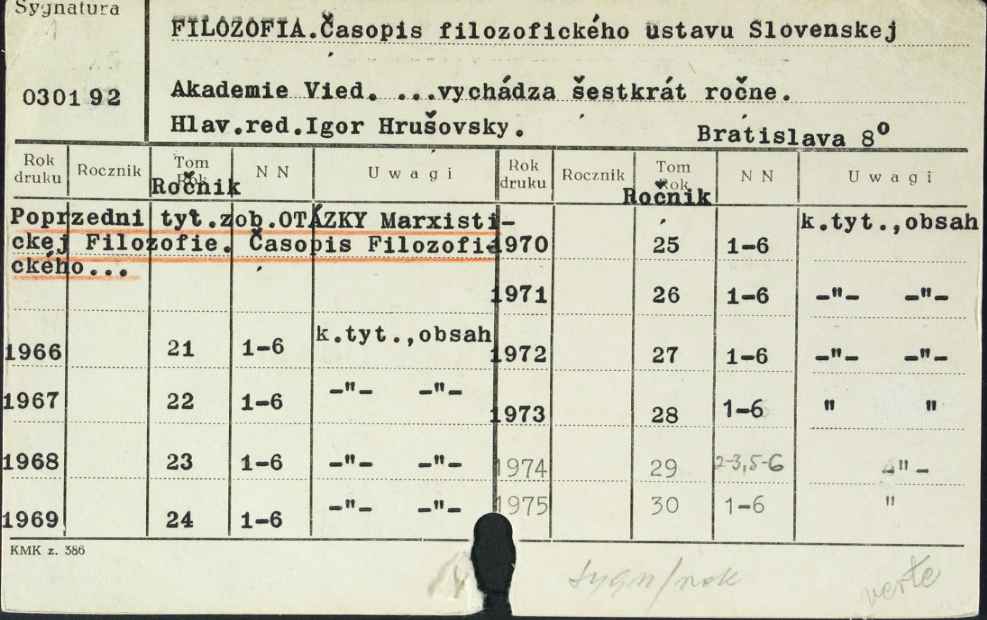 Sygnatura
FILOZOFIA.Časopis filozofického ustavu Slovenskej
030192
Akademie Vied. ...vychádza šestkrát ročne.
Hlav.red.Igor Hrušovsky.
Bratislava 8º
Rok druku Rocznik Tom Rok N N Uwagi Rok druku Rocznik Tom Rok N N Uwagi
Ročnik Ročnik
Poprzedni tyt.zob.OTÁZKY Marxisti-
ckej Filozofie. Časopis Filozofi-
ckého...
1970 25 1-6 k.tyt.,obsah
1971 26 1-6 -"- -"-
1966 21 1-6 k.tyt.,obsah
1972 27 1-6 -"- -"-
1967 22 1-6 -"- -"-
1973 28 1-6 " "
1968 23 1-6 -"- -"-
1974 29 2-3,5-6 -"-
1969 24 1-6 -"- -"-
1975 30 1-6 "
KMK z. 386
sygn/rok
verte